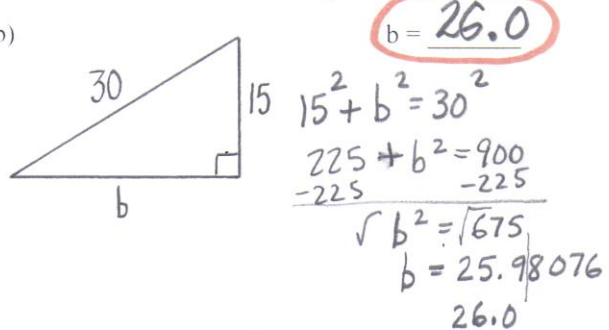 b)
b = 26.0
30
15
b
15² + b² = 30²
225 + b² = 900
-225 -225
√b² = √675
b = 25.98076
26.0